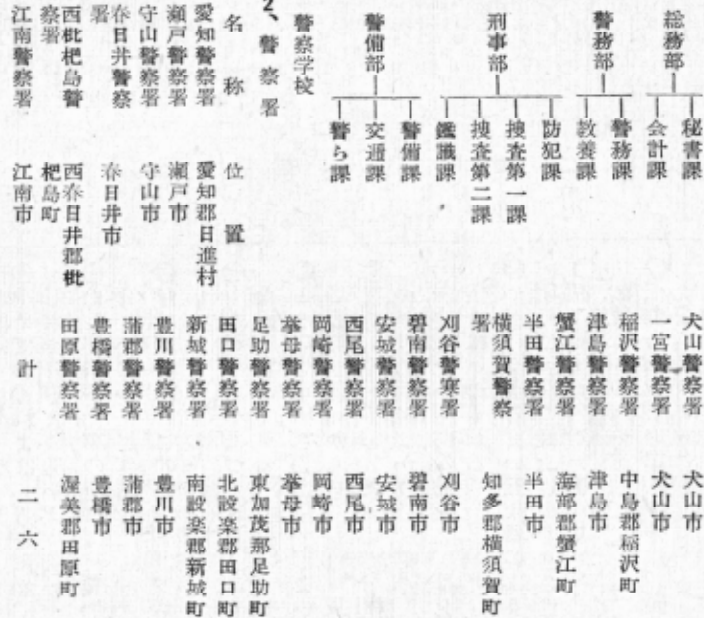 総務部
秘書課
会計課
警務部
警務課
教養課
刑事部
防犯課
捜査第一課
捜査第二課
鑑識課
警備部
警備課
交通課
警ら課
警察学校
2、警察署
名称 位置
愛知警察署 愛知郡日進村
瀬戸警察署 瀬戸市
守山警察署 守山市
春日井警察署 春日井市
西枇杷島警察署 西春日井郡枇杷島町
江南警察署 江南市
犬山警察署 犬山市
一宮警察署 犬山市
稲沢警察署 中島郡稲沢町
津島警察署 津島市
蟹江警察署 海部郡蟹江町
半田警察署 半田市
横須賀警察署 知多郡横須賀町
刈谷警察署 刈谷市
碧南警察署 碧南市
安城警察署 安城市
西尾警察署 西尾市
岡崎警察署 岡崎市
挙母警察署 挙母市
足助警察署 東加茂郡足助町
田口警察署 北設楽郡田口町
新城警察署 南設楽郡新城町
豊川警察署 豊川市
蒲郡警察署 蒲郡市
豊橋警察署 豊橋市
田原警察署 渥美郡田原町
計 二六